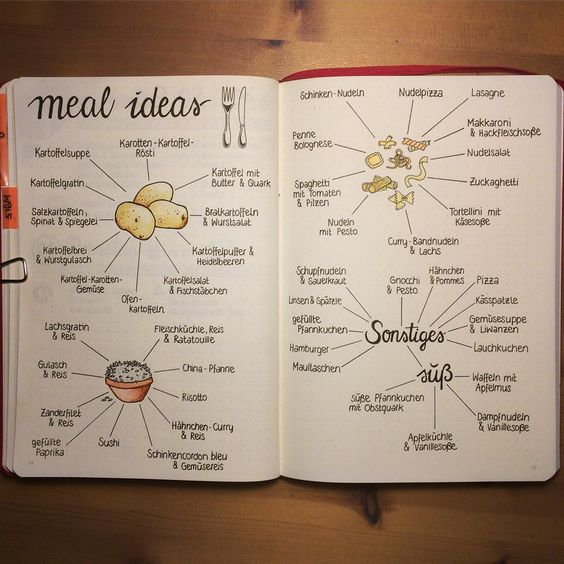 meal ideas
Kartoffelsuppe
Karotten-Kartoffel-
Rösti
Kartoffel mit
Butter & Quark
Kartoffelgratin
Salzkartoffeln,
Spinat & Spiegelei
Bratkartoffeln
& Wurstsalat
Kartoffelbrei
& Wurstgulasch
Kartoffelpuffer &
Heidelbeeren
Kartoffel-Karotten-
Gemüse
Kartoffelsalat
& Fischstäbchen
Ofen-
kartoffeln
Lachsgratin
& Reis
Fleischküchle, Reis
& Ratatouille
Gulasch
& Reis
China-Pfanne
Risotto
Zanderfilet
& Reis
Hähnchen-Curry
& Reis
gefüllte
Paprika
Sushi
Schinkencordon bleu
& Gemüsereis
Schinken-Nudeln
Nudelpizza
Lasagne
Penne
Bolognese
Makkaroni
& Hackfleischsoße
Nudelsalat
Spaghetti
mit Tomaten
& Pilzen
Zuckaghetti
Nudeln
mit Pesto
Tortellini mit
Käsesoße
Curry-Bandnudeln
& Lachs
Schupfnudeln
& Sauerkraut
Gnocchi
& Pesto
Hähnchen
& Pommes
Pizza
Linsen & Spätzle
Kässpatzle
gefüllte
Pfannkuchen
Sonstiges
Gemüsesuppe
& Liwanzen
Hamburger
Lauchkuchen
Maultaschen
süß
Waffeln mit
Apfelmus
Süße Pfannkuchen
mit Obstquark
Dampfnudeln
& Vanillesoße
Apfelküchle
& Vanillesoße